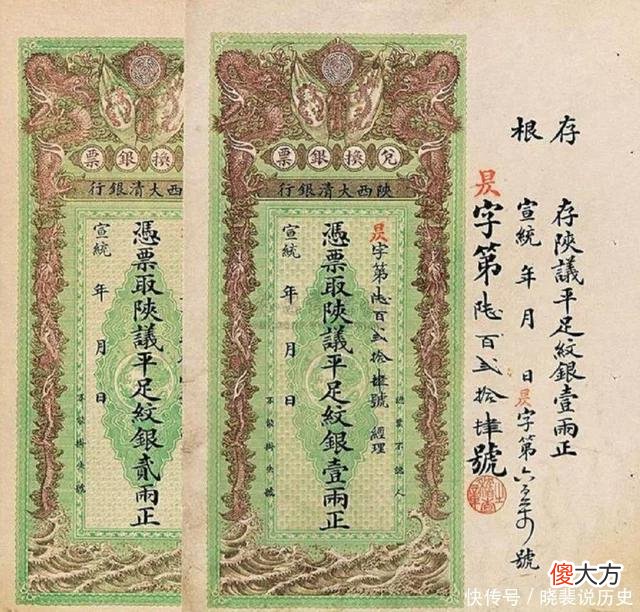 存根
存陝議平足紋銀壹兩正
宣統 年 月 日 昃字第 號
昃字第陸百貳拾肆號
兌換銀票
陝西大清銀行
昃字第陸百貳拾肆號 經理
認票不認人
憑票取陝議平足紋銀壹兩正
宣統 年 月 日
換銀票
西大清銀行
憑票取陝議平足紋銀貳兩正
宣統 年 月 日
傻大方
快传号/晓裴说历史